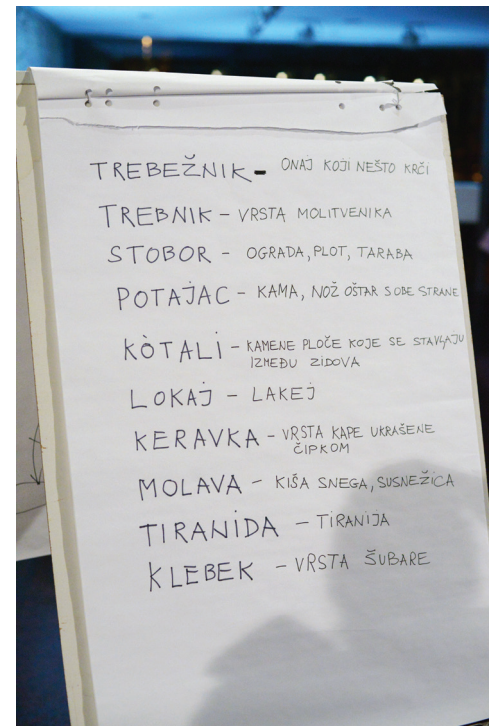 TREBEŽNIK - ONAJ KOJI NEŠTO KRČI
TREBNIK - VRSTA MOLITVENIKA
STOBOR - OGRADA, PLOT, TARABA
POTAJAC - KAMA, NOŽ OŠTAR S OBE STRANE
KÒTALI - KAMENE PLOČE KOJE SE STAVLJAJU
IZMEĐU ZIDOVA
LOKAJ - LAKEJ
KERAVKA - VRSTA KAPE UKRAŠENE
ČIPKOM
MOLAVA - KIŠA SNEGA, SUSNEŽICA
TIRANIDA - TIRANIJA
KLEBEK - VRSTA ŠUBARE